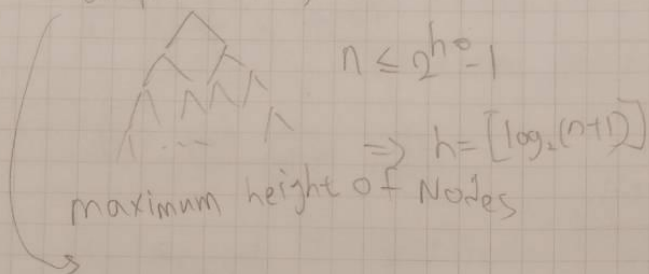 n ≤ 2^h - 1
⇒ h = [log₂(n+1)]
maximum height of Nodes